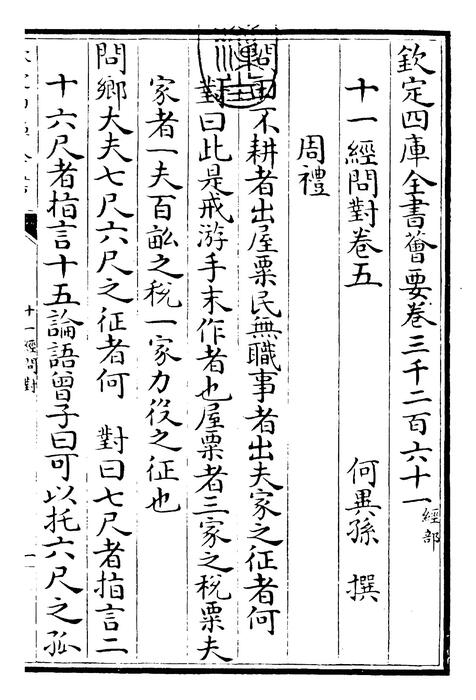 欽定四庫全書薈要卷三千二百六十一 經部
十一經問對卷五
何異孫 撰
周禮
問田不耕者出屋粟民無職事者出夫家之征者何
對曰此是戒游手末作者也屋粟者三家之稅粟夫
家者一夫百畝之稅一家力役之征也
問鄉大夫七尺六尺之征者何 對曰七尺者指言二
十六尺者指言十五論語曾子曰可以托六尺之孤
十一經問對